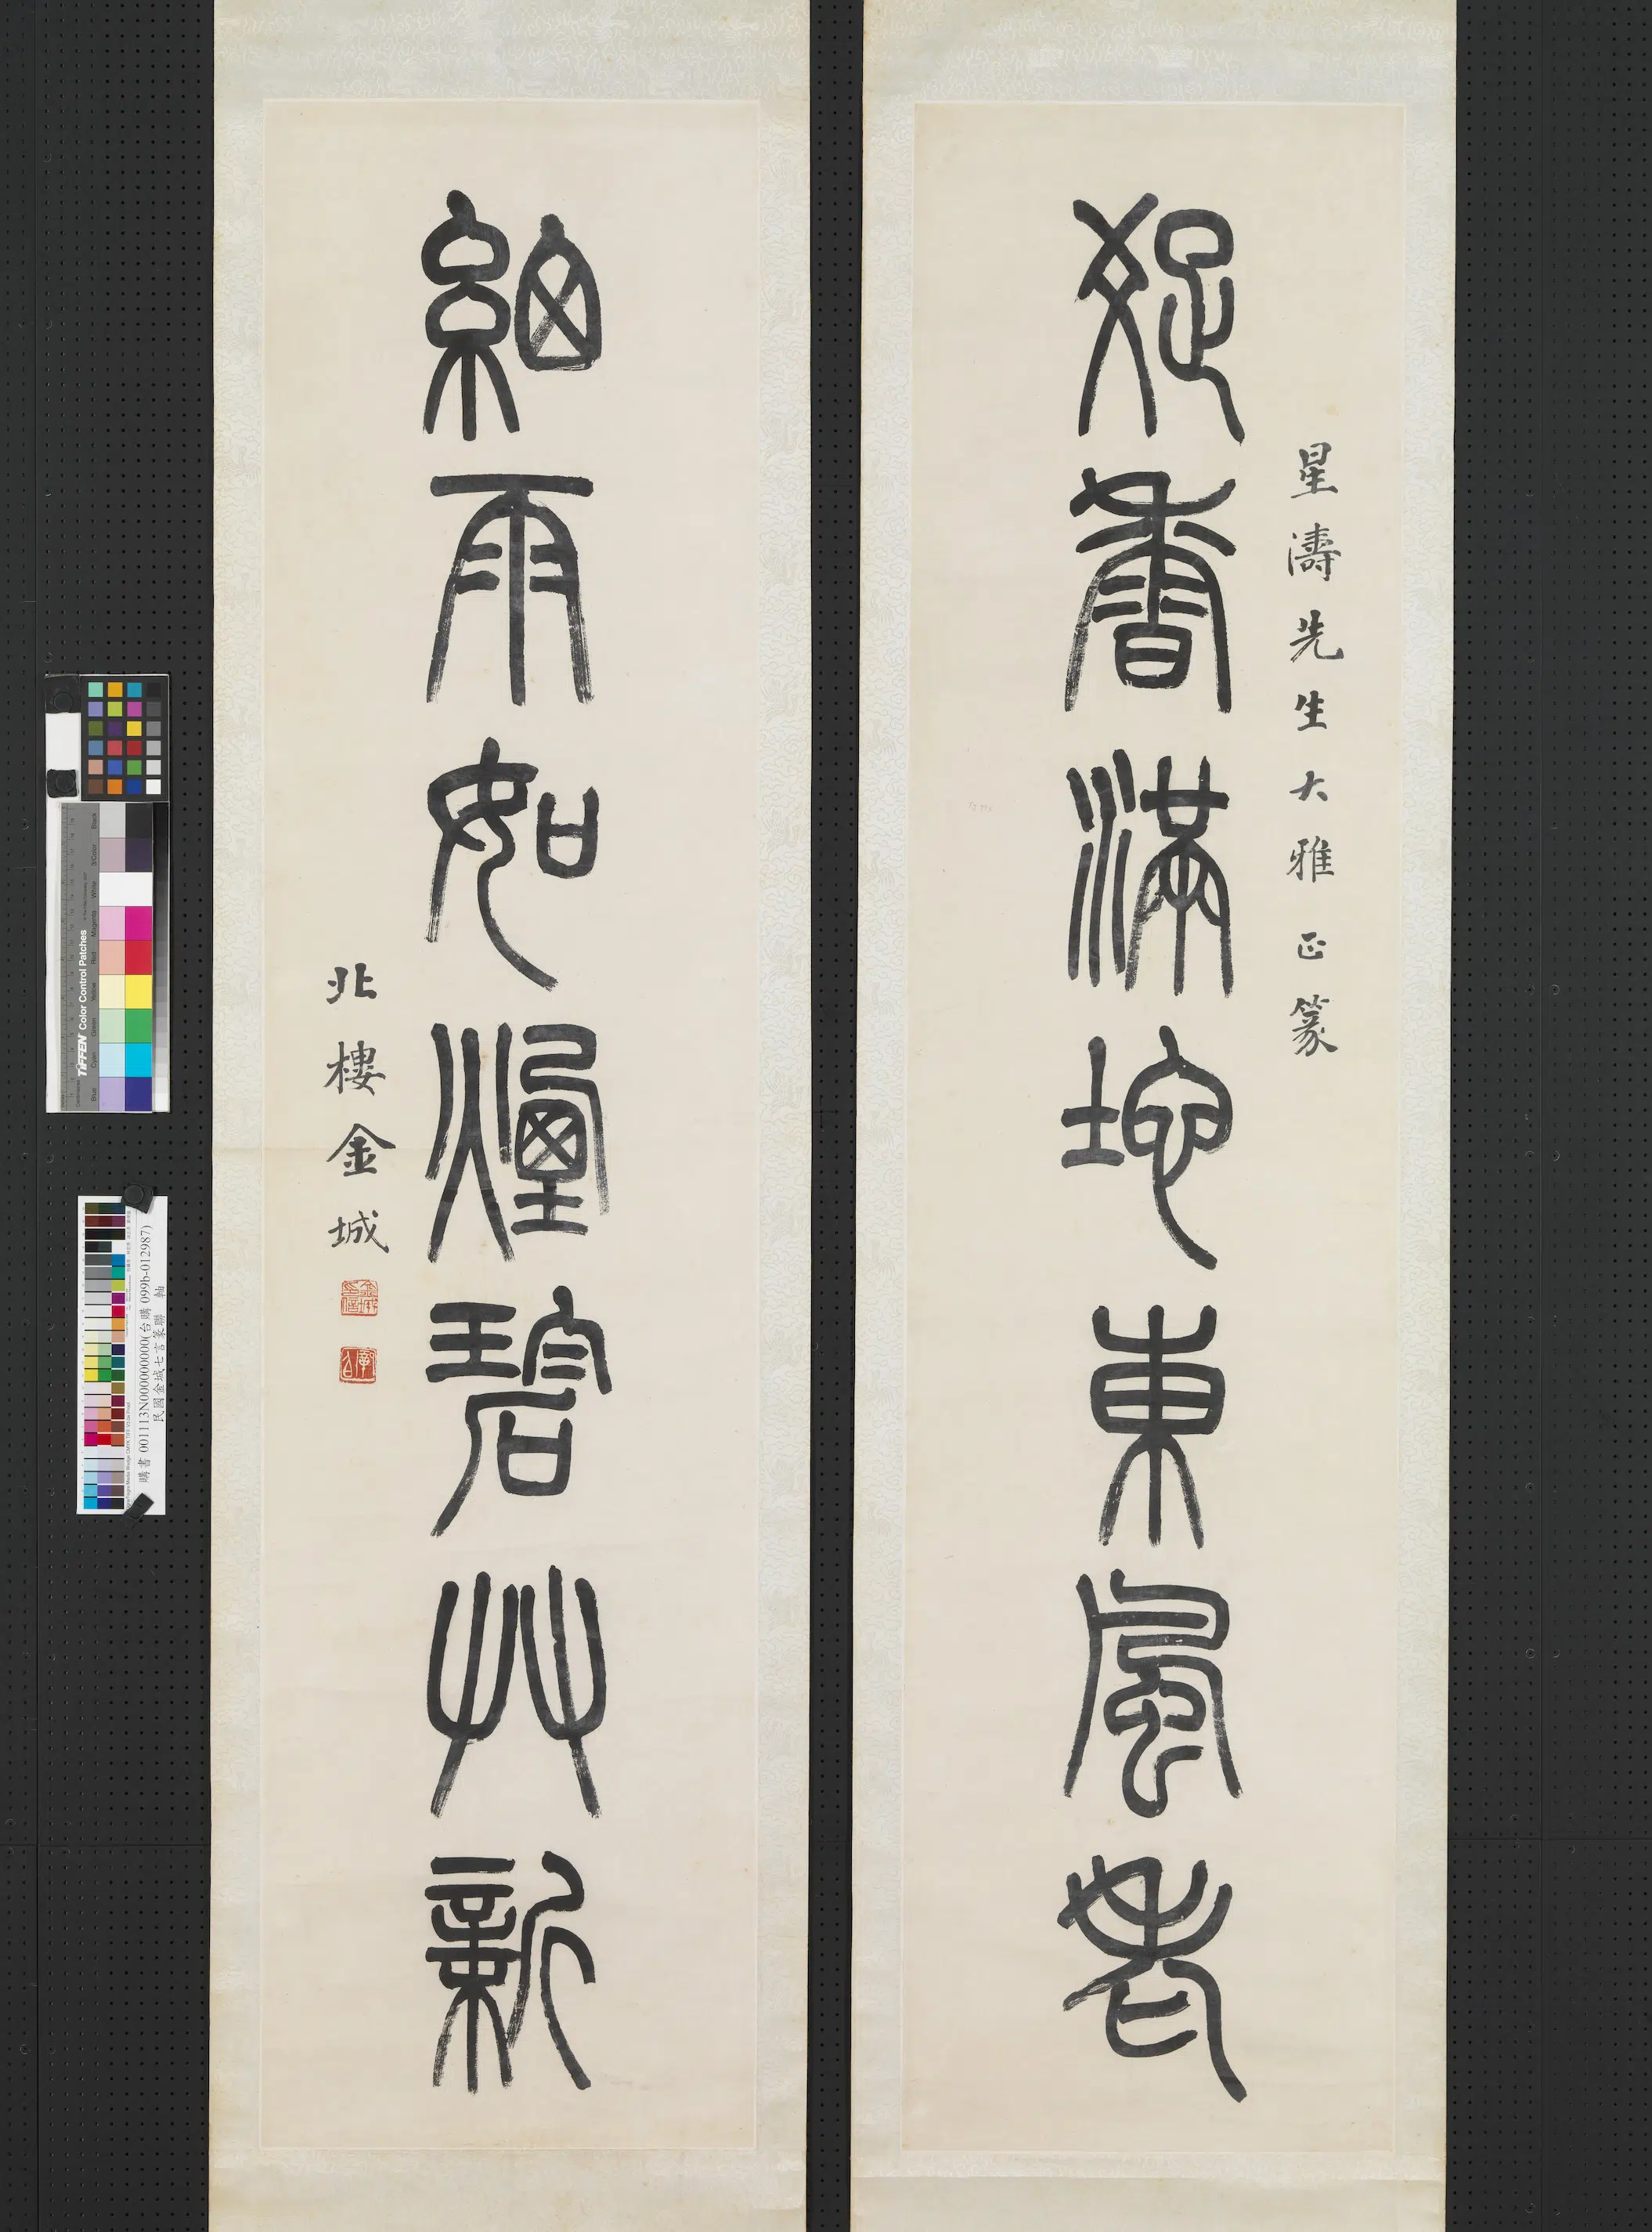 星濤先生大雅正篆
疏香滿地東風老
細雨如煙碧艸新
北樓金城
金城印信
TIFFEN Color Control Patches
Blue Cyan Green Yellow Red Magenta White 3/Color Black
購書 001113N000000000(台購 099b-012987)
民國金城七言篆聯 軸